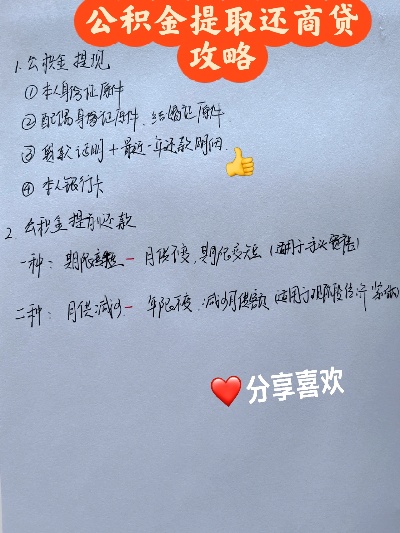 公积金提取还商贷
攻略
1. 公积金提现
① 本人身份证原件
② 配偶身份证原件、结婚证原件
③ 贷款证明+最近一年还款明细.
④ 本人银行卡
2. 公积金提前还款
一种：期限 — 月供不变,期限变短(适用于
二种：月供减少 — 年限不变.减少月供额(适用于现阶段经济
分享喜欢